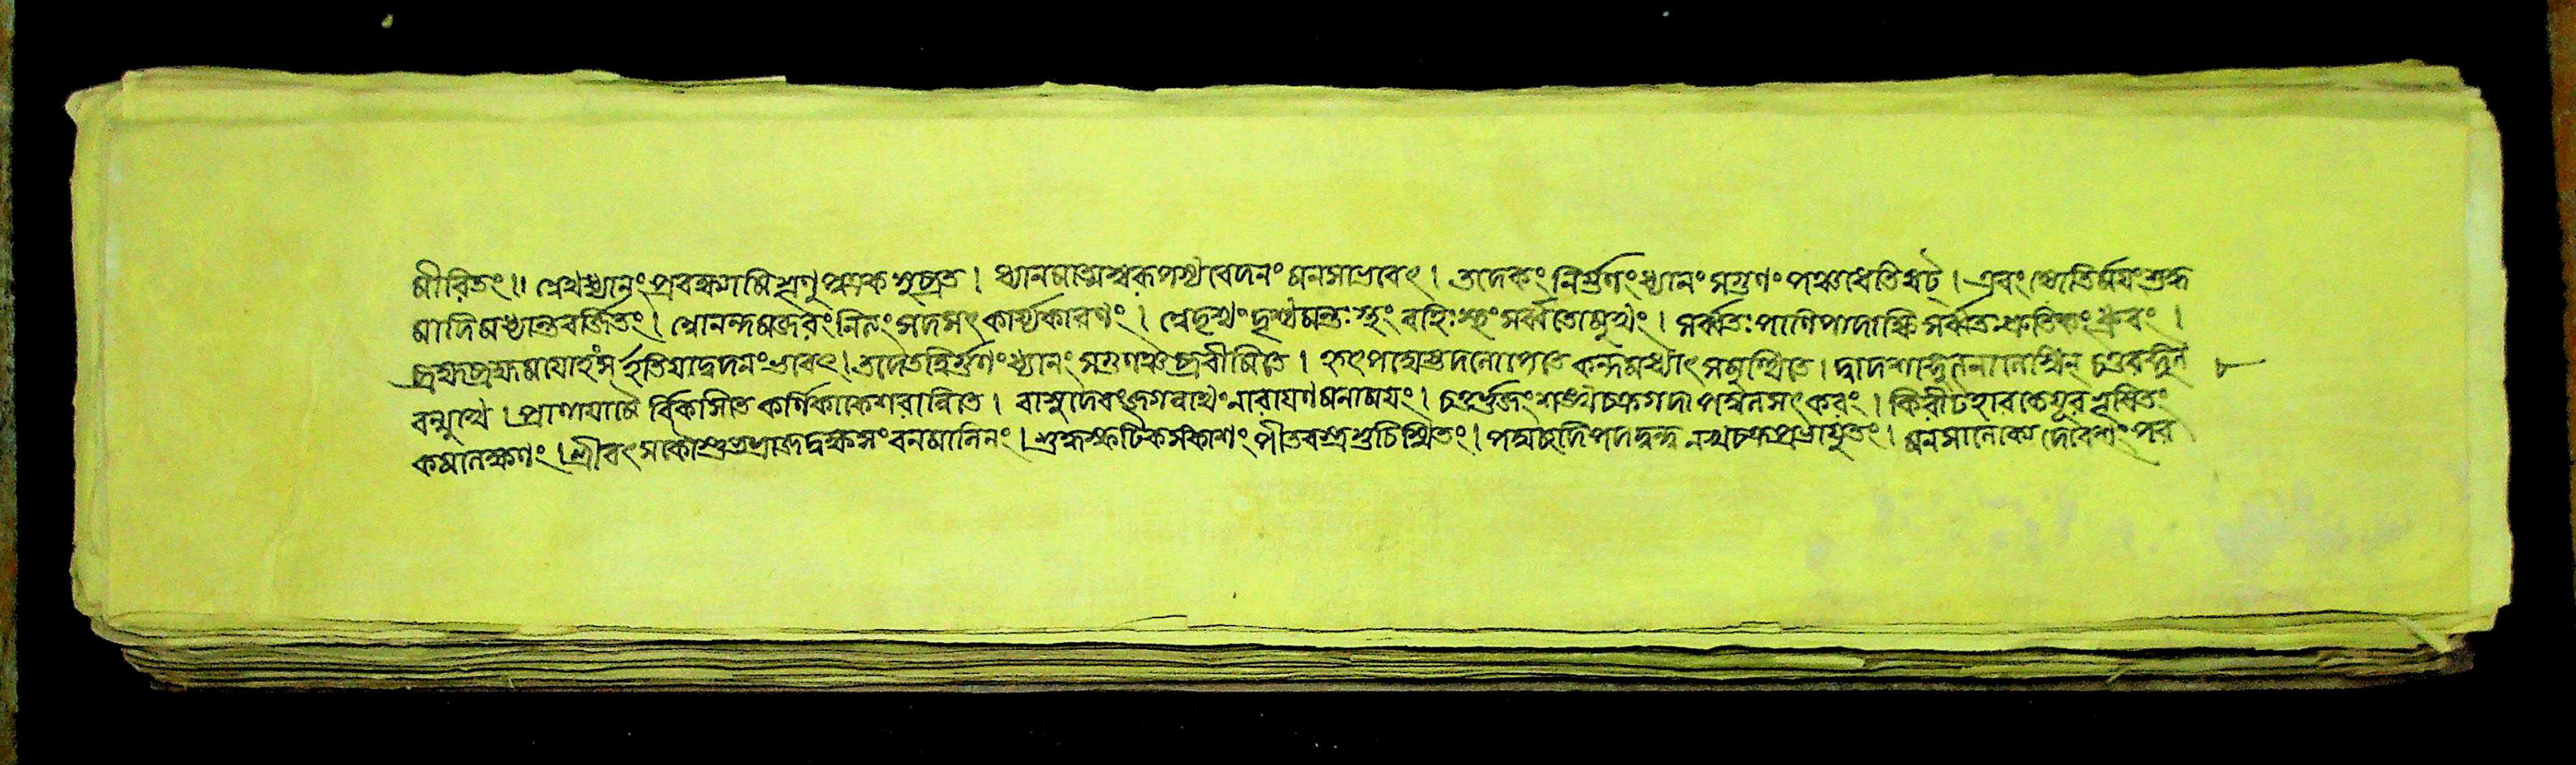 মীরিতং॥ অথধ্যানংপ্রবক্ষ্যামিশৃণু শৌনক সুব্রত। ধ্যানমাত্মস্বরূপস্যবেদনং মনসাভবেৎ। তদেকং নির্গুণংধ্যানং সগুণং পঞ্চধেতিষট্। এবং জ্যোতির্ময়ং শুদ্ধ
মাদিমধ্যান্তবর্জিতং। আনন্দমজরং নিত্যং সদসৎ কার্য্যকারণং। অদৃশ্যং দৃশ্যমন্তঃস্থং বহিঃস্থং সর্ব্বতোমুখং। সর্ব্বতঃ পাণিপাদাক্ষি সর্ব্বতঃশ্রুতিকং ধ্রুবং।
ব্রহ্মব্রহ্মময়োহং স ইতিযদ্বেদনং ভবেৎ। তদেতন্নির্গুণং ধ্যানং সগুণঞ্চ ব্রবীমিতে। হৃৎপদ্মেষ্টদলোপেতে কন্দমধ্যাৎ সমুত্থিতে। দ্বাদশাঙ্গুলনালেস্মিন্ চতুরঙ্গুল ৮
বন্মুখে। প্রাণায়ামৈর্বিকসিতে কর্ণিকাকেশরান্বিতে। বাসুদেবং জগন্নাথং নারায়ণমনাময়ং। চতুর্ভুজং শঙ্খচক্রগদাপদ্মলসৎকরং। কিরীটহারকেয়ূর ভূষিতং
কমলেক্ষণং। শ্রীবৎসকৌস্তুভভ্রাজদ্বক্ষসং বনমালিনং। শুদ্ধস্ফটিকসংকাশং পীতবস্ত্রশুচিস্মিতং। পদ্মচ্ছদিপদদ্বন্দ্ব নখচক্রপ্রভাযুতং। মনসালোক্য দেবেশং পর